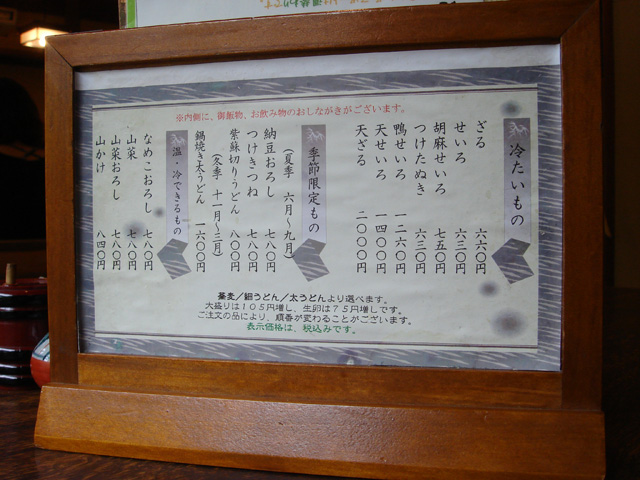 ※内側に、御飯物、お飲み物のおしながきがございます。
冷たいもの
ざる 六六〇円
せいろ 六三〇円
胡麻せいろ 七五〇円
つけたぬき 六三〇円
鴨せいろ 一二六〇円
天せいろ 一四〇〇円
天ざる 二〇〇〇円
季節限定もの
(夏季 六月〜九月)
納豆おろし 七八〇円
つけきつね 七八〇円
紫蘇切りうどん 八〇〇円
(冬季 十一月〜三月)
鍋焼き太うどん 一六〇〇円
温・冷できるもの
なめこおろし 七八〇円
山菜 七八〇円
山菜おろし 七八〇円
山かけ 八四〇円
蕎麦/細うどん/太うどんより選べます。
大盛りは105円増し、生卵は75円増しです。
ご注文の品により、順番が変わることがございます。
表示価格は、税込みです。